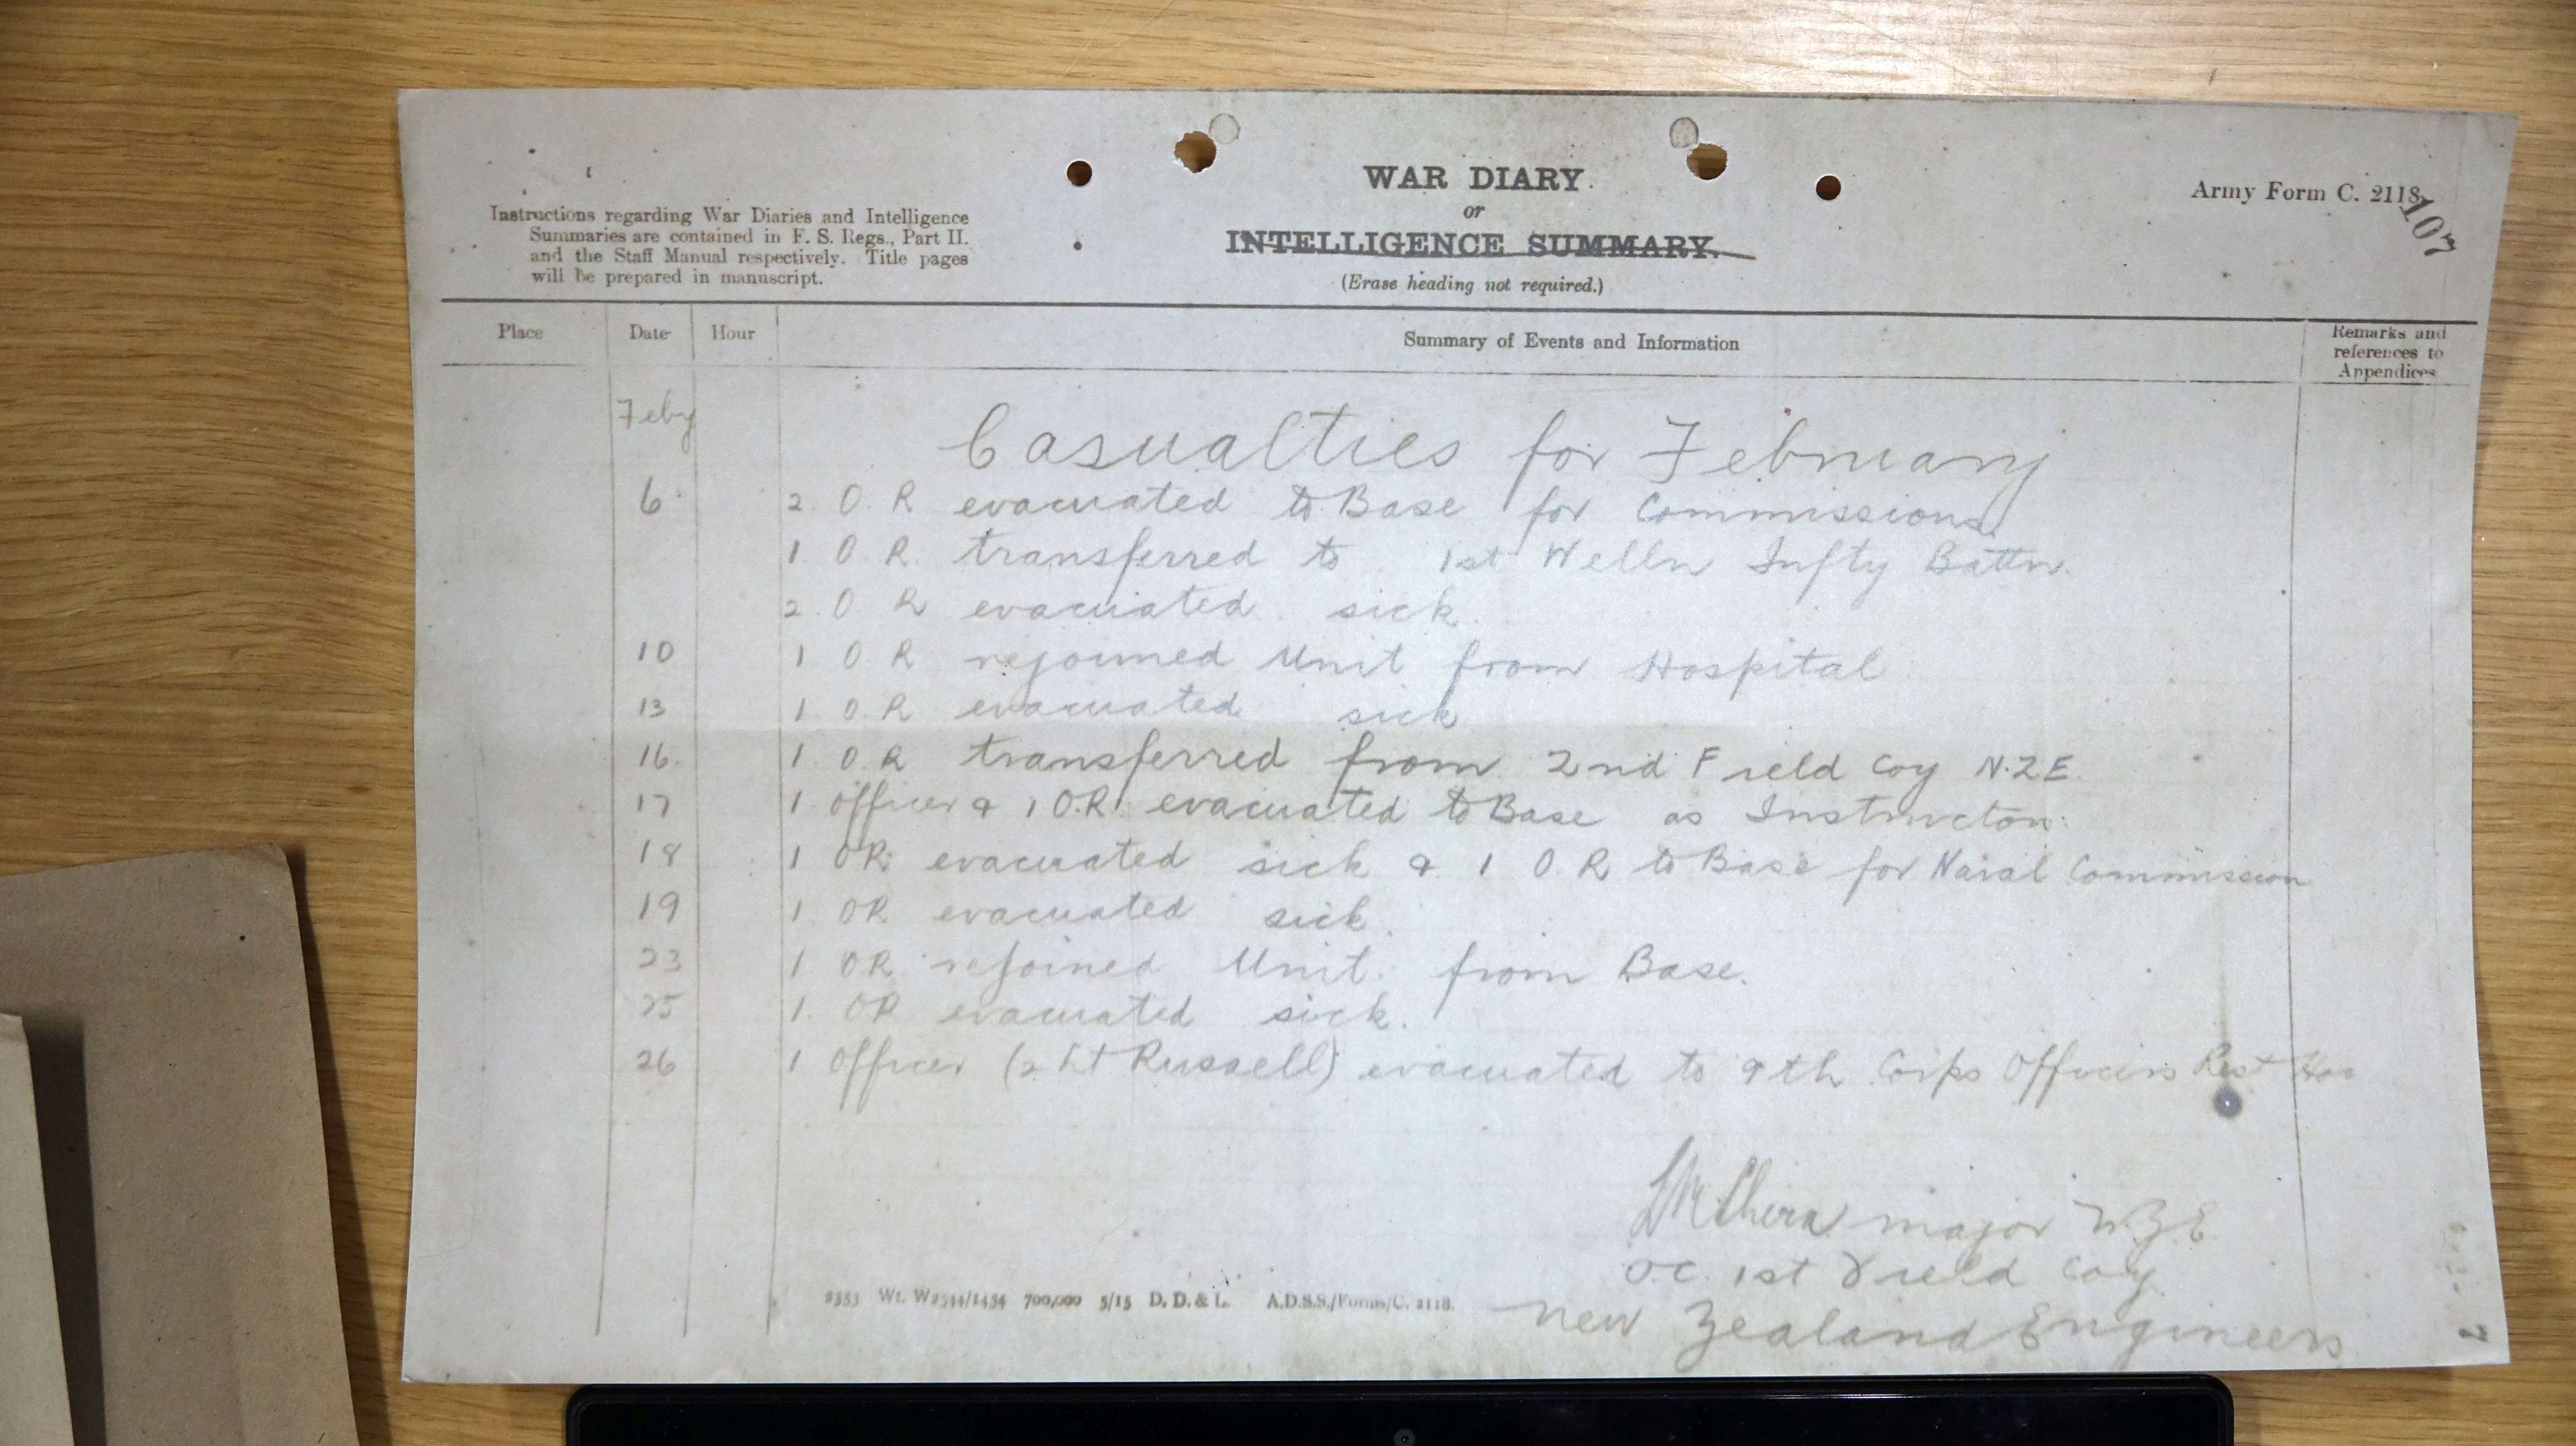 WAR DIARY.
or
INTELLIGENCE SUMMARY.
(Erase heading not required.)
Army Form C. 2118.
107
Instructions regarding War Diaries and Intelligence
Summaries are contained in F. S. Regs., Part II.
and the Staff Manual respectively. Title pages
will be prepared in manuscript.
Place Date Hour Summary of Events and Information Remarks and
references to
Appendices
Feby
Casualties for February
6 2. O. R evacuated to Base for Commissions
1 O. R. transferred to 1st Welln Infty Battn.
2. O. R evacuated sick.
10 1 O. R rejoined Unit from Hospital
13 1 O. R evacuated sick
16. 1. O. R transferred from 2nd Field Coy N.Z.E.
17 1 officer & 1 O.R. evacuated to Base as Instructors.
18 1 OR. evacuated sick & 1 O. R to Base for Naval Commission
19 1. OR evacuated sick.
23 1 OR rejoined Unit. from Base.
25 1. OR evacuated sick.
26 1 Officer (2 Lt Russell) evacuated to 9th Corps Officers Rest
major N.Z.E
O.C. 1st Field Coy
New Zealand Engineers
2353 Wt. W2544/1454 700,000 5/15 D. D. & L. A.D.S.S./Forms/C. 2118.